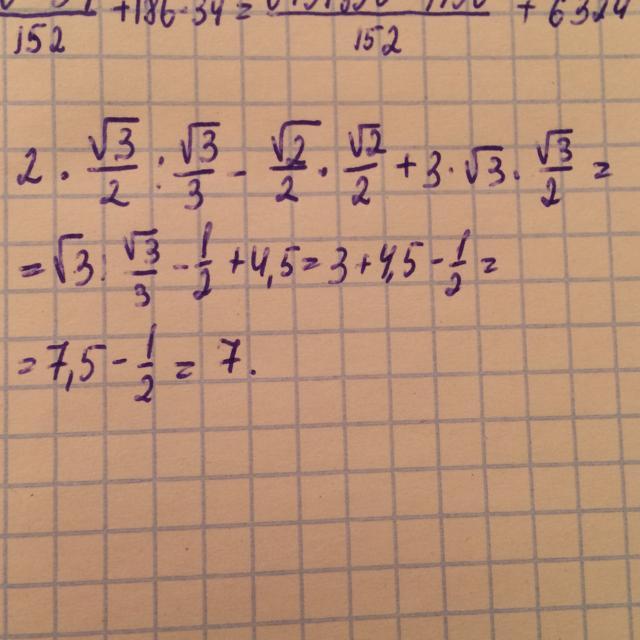 152 + 186 · 34 = 152 + 6324
2 · √3/2 : √3/3 - √2/2 · √2/2 + 3 · √3 · √3/2 =
= √3 : √3/3 - 1/2 + 4,5 = 3 + 4,5 - 1/2 =
= 7,5 - 1/2 = 7.